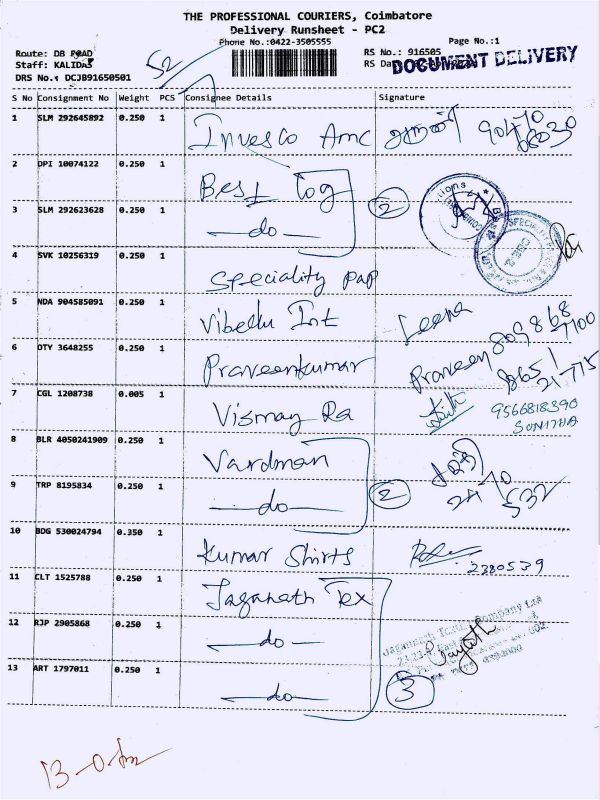 THE PROFESSIONAL COURIERS, Coimbatore
Delivery Runsheet - PC2
Phone No.:0422-3505555
Page No.:1
Route: DB ROAD
RS No.: 916505
Staff: KALIDAS
RS Da
DOCUMENT DELIVERY
DRS No.: DCJB91650501
52
S No Consignment No Weight PCS Consignee Details Signature
1 SLM 292645892 0.250 1
Invesco Amc
2 DPI 10074122 0.250 1
Best Log 2
3 SLM 292623628 0.250 1
do
4 SVK 10256319 0.250 1
Speciality pap
5 NDA 904585091 0.250 1
Vibellu Int Leena
6 OTY 3648255 0.250 1
Praveenkumar Praveen
7 CGL 1208738 0.005 1
Vismay Ra 9566818390
SUNITHA
8 BLR 4050241909 0.250 1
Vardman
9 TRP 8195834 0.250 1
do 2
10 BDG 530024794 0.350 1
Kumar Shirts 2380539
11 CLT 1525788 0.250 1
Jaganath Tex
12 RJP 2905868 0.250 1
do
13 ART 1797011 0.250 1
do 3